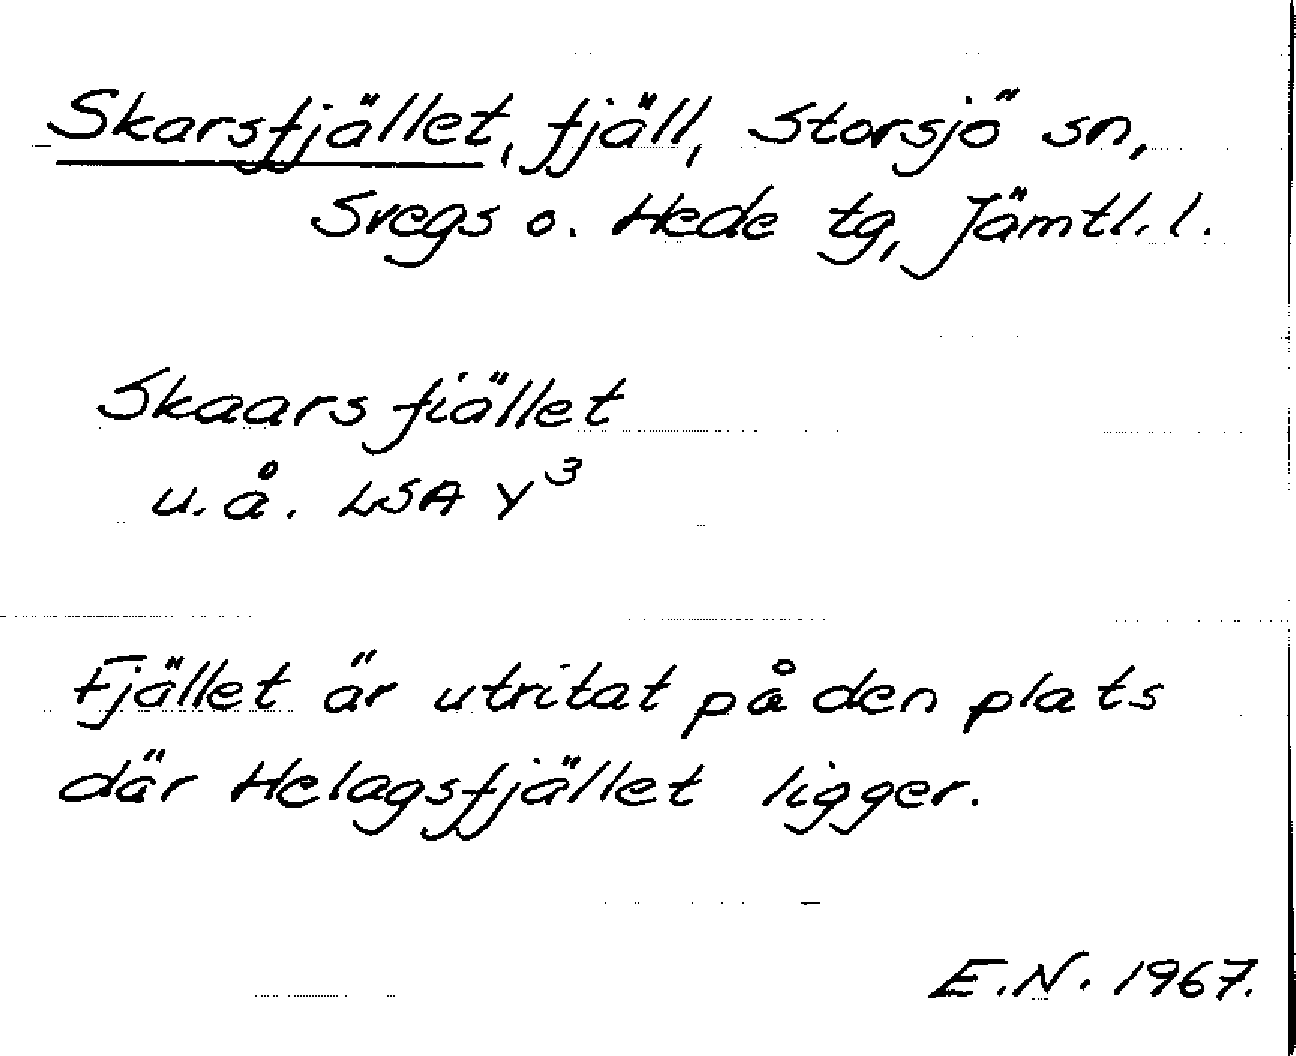 Skarsfjället, fjäll, Storsjö sn,
Svegs o. Hede tg, Jämtl. l.
Skaars fiället
u. å. LSA Y³
Fjället är utritat på den plats
där Helagsfjället ligger.
E.N. 1967.